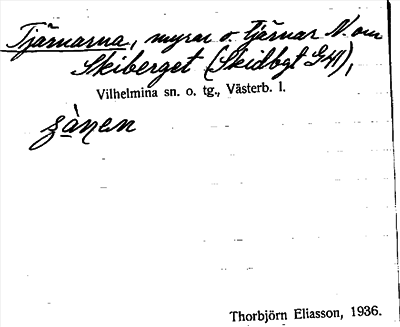 Tjärnarna, myrar o. tjärnar N. om
Skiberget (Skidbgt G41),
Vilhelmina sn. o. tg., Västerb. l.
Thorbjörn Eliasson, 1936.